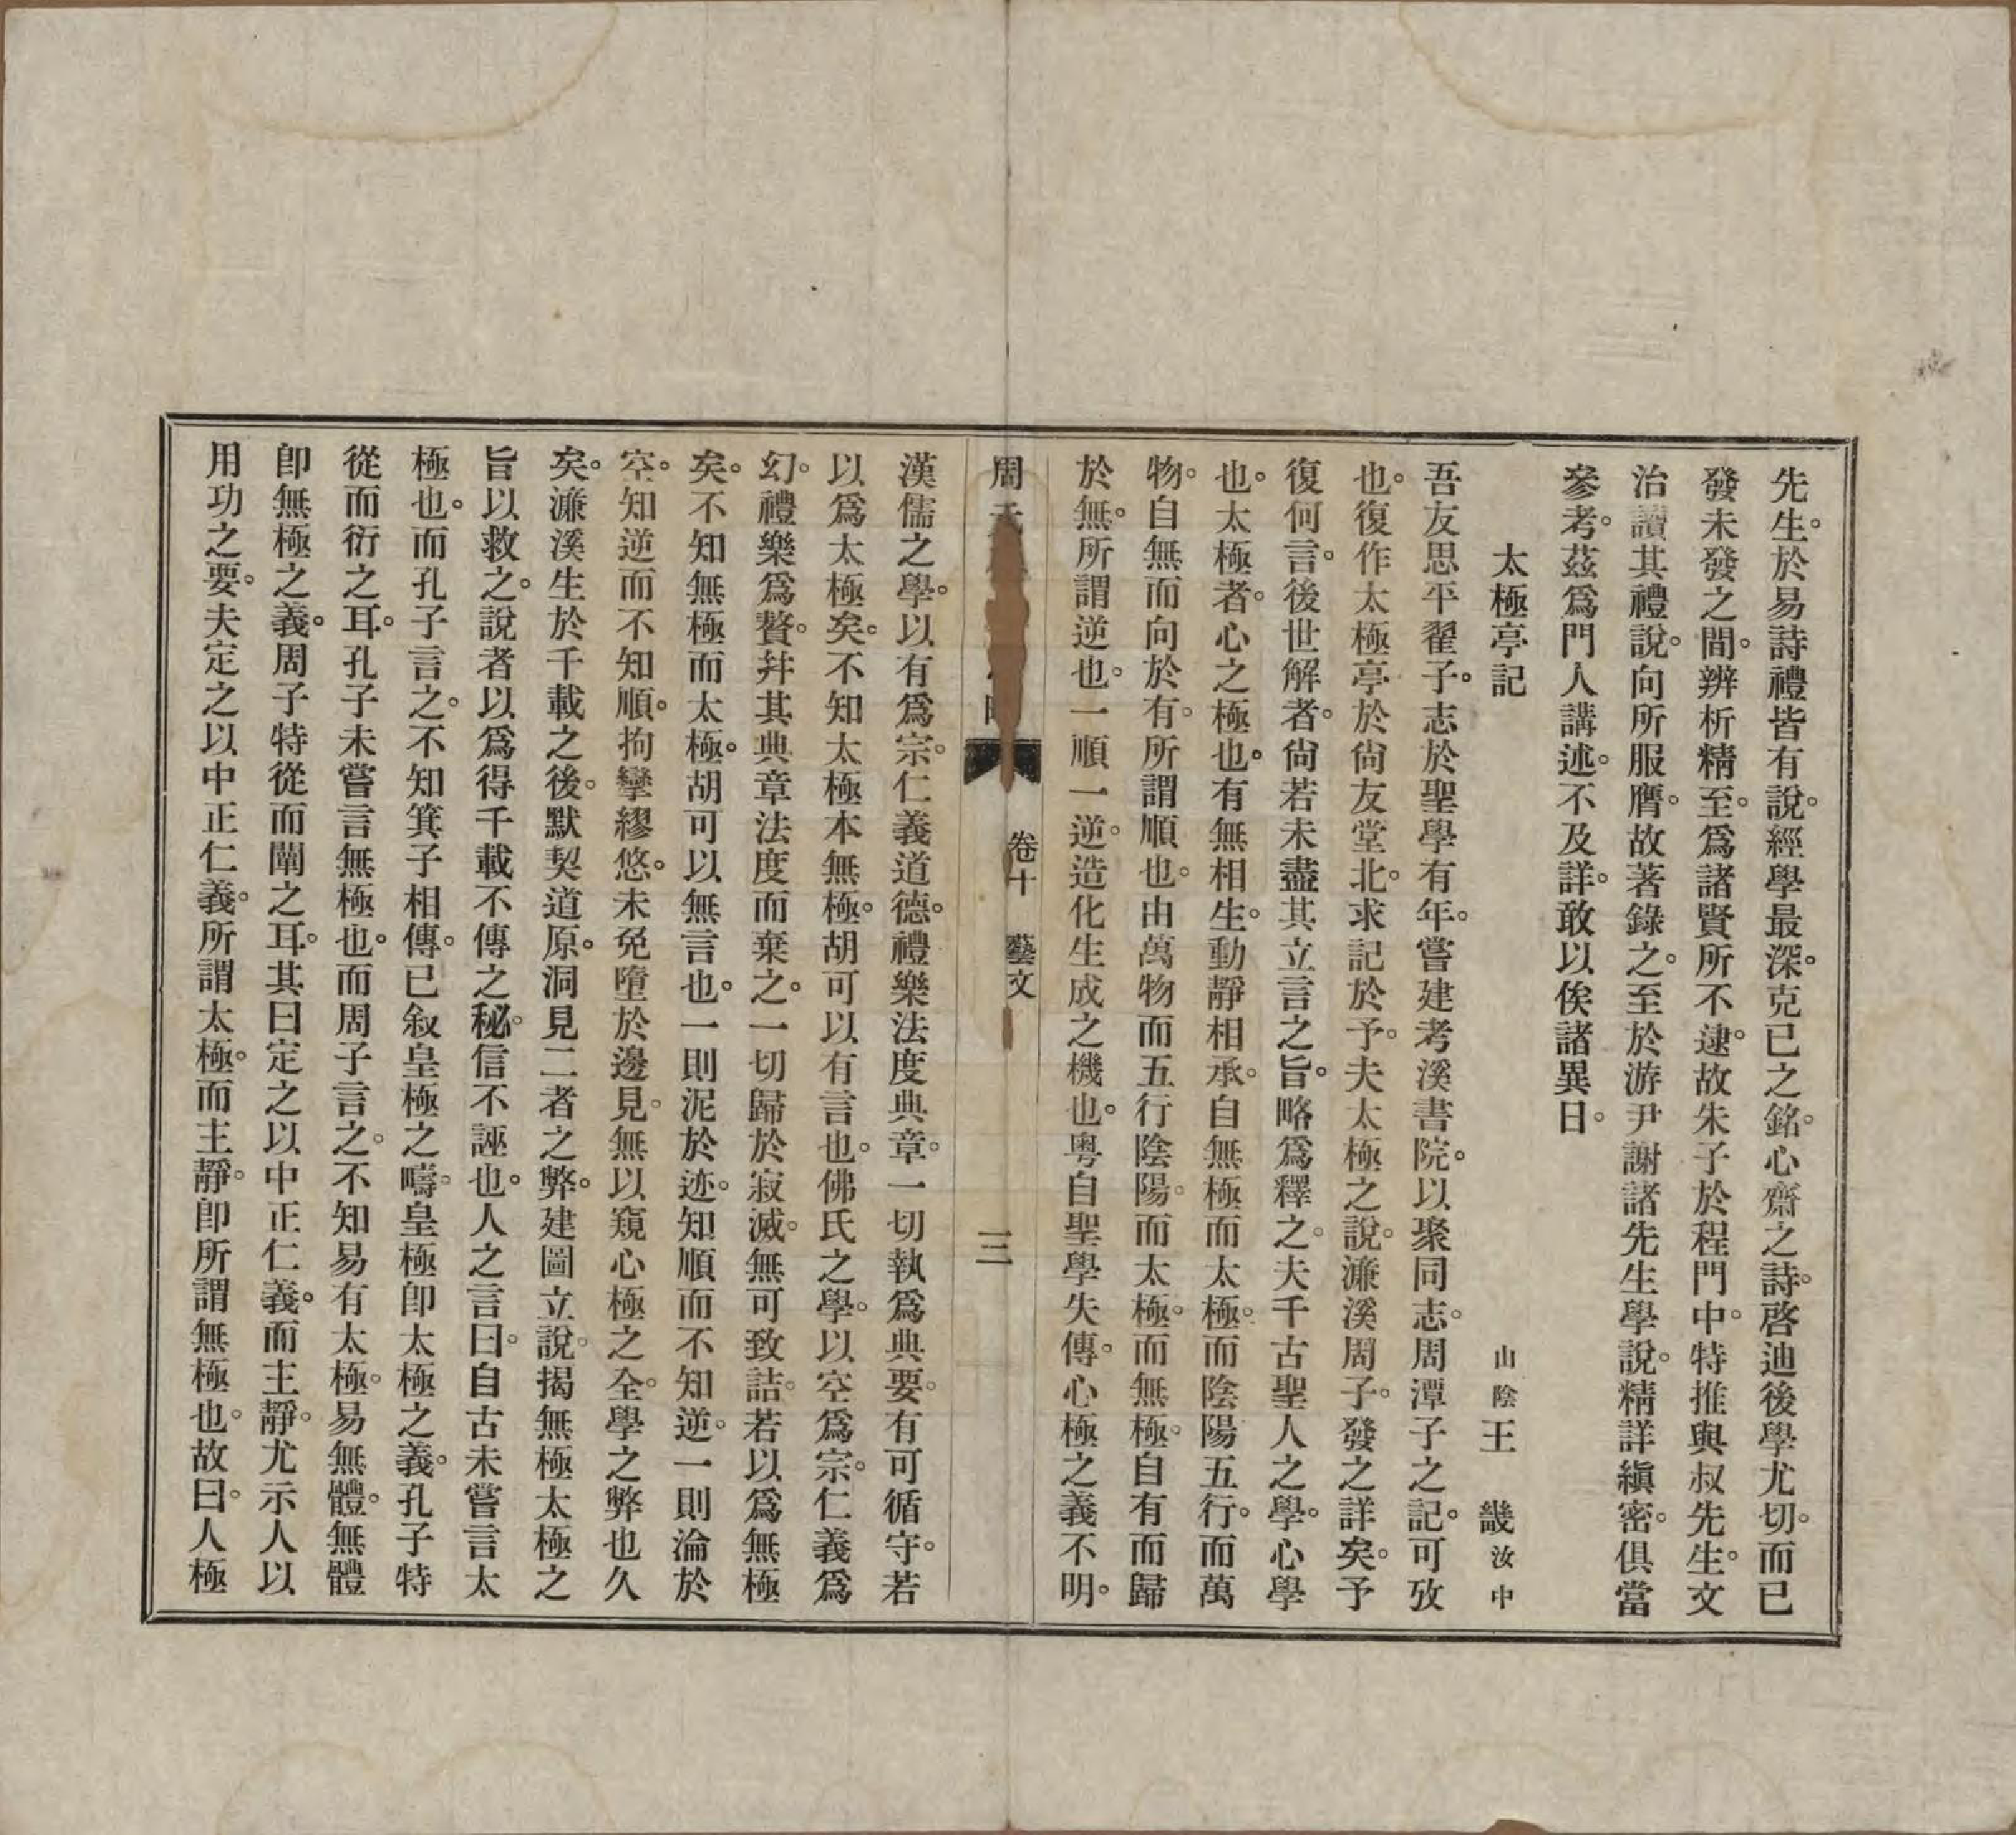 先生。於易詩禮皆有說。經學最深。克已之銘。心齋之詩。啓迪後學尤切。而已
發未發之間。辨析精至。爲諸賢所不逮。故朱子於程門中。特推與叔先生。文
治讀其禮說。向所服膺。故著錄之。至於游尹謝諸先生學說。精詳縝密。俱當
參考。茲爲門人講述。不及詳。敢以俟諸異日。
太極亭記　山陰王　畿汝中
吾友思平翟子。志於聖學有年。嘗建考溪書院。以聚同志。周潭子之記。可攷
也。復作太極亭於尙友堂北。求記於予。夫太極之說。濂溪周子。發之詳矣。予
復何言。後世解者。尙若未盡其立言之旨。略爲釋之。夫千古聖人之學。心學
也。太極者。心之極也。有無相生。動靜相承。自無極而太極。而陰陽五行。而萬
物。自無而向於有。所謂順也。由萬物而五行陰陽。而太極。而無極。自有而歸
於無。所謂逆也。一順一逆。造化生成之機也。粤自聖學失傳。心極之義不明。
周氏
卷十　藝文
三
漢儒之學。以有爲宗。仁義道德。禮樂法度典章。一切執爲典要。有可循守。若
以爲太極矣。不知太極本無極。胡可以有言也。佛氏之學。以空爲宗。仁義爲
幻。禮樂爲贅。并其典章法度而棄之。一切歸於寂滅。無可致詰。若以爲無極
矣。不知無極而太極。胡可以無言也。一則泥於迹。知順而不知逆。一則淪於
空。知逆而不知順。拘攣繆悠。未免墮於邊見。無以窺心極之全。學之弊也久
矣。濂溪生於千載之後。默契道原。洞見二者之弊。建圖立說。揭無極太極之
旨以救之。說者以爲得千載不傳之秘。信不誣也。人之言曰。自古未嘗言太
極也。而孔子言之。不知箕子相傳。已叙皇極之疇。皇極卽太極之義。孔子特
從而衍之耳。孔子未嘗言無極也。而周子言之。不知易有太極。易無體。無體
卽無極之義。周子特從而闡之耳。其曰定之以中正仁義。而主靜。尤示人以
用功之要。夫定之以中正仁義。所謂太極。而主靜。卽所謂無極也。故曰。人極